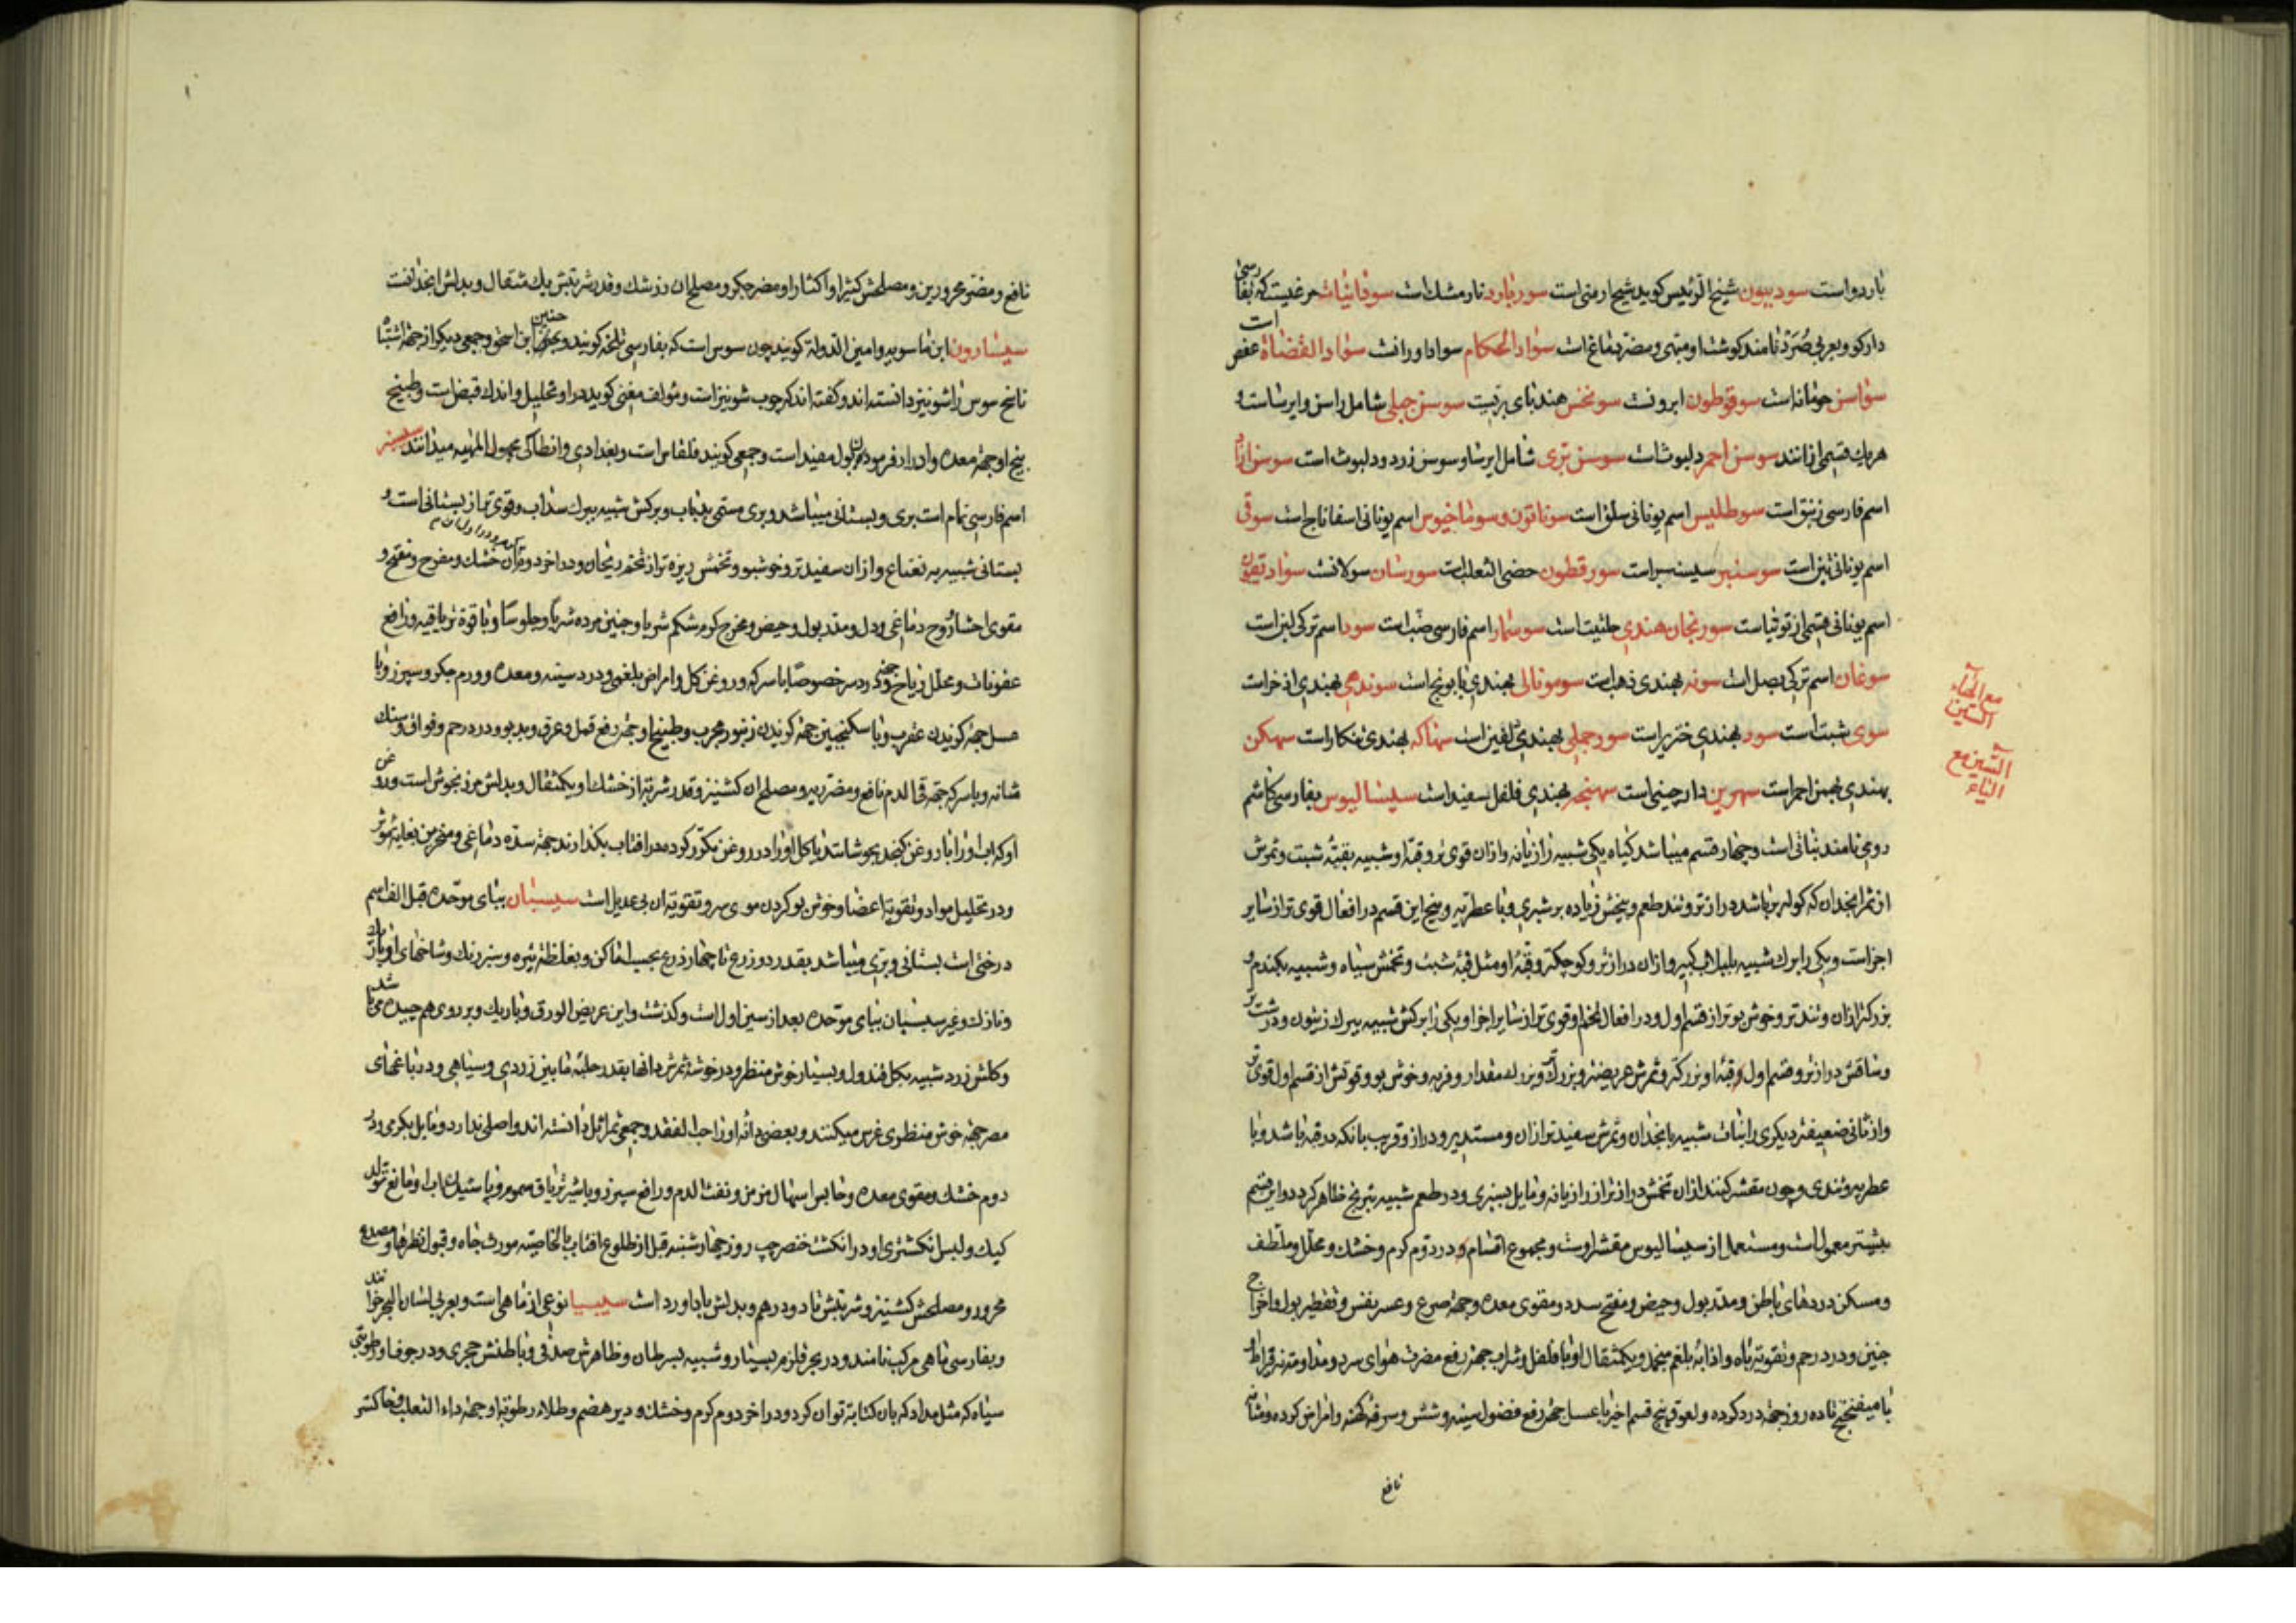 بارد و است سودبیون شیخ الرئیس کوید شیح ارمنی است سورنارد نارمشك است سودانیات مرغیست که بفارسی
دارکو و بعربی صُرَد نامند کوشت او مبهی و مضر دماغ است سواد الحکام سوادا و رانست سواد القضاة عفص است
سواسن حومانه است سوقوطون ابرونت سونخس هندبای بریست سوسن جبلی شامل راسن و ایرساست و
هریك قسمی ازانند سوسن احمر دلبوث است سوسن بری شامل ایرسا و سوسن زرد و دلبوث است سوسن ازاد
اسم فارسی زنبق است سوطلیس اسم یونانی سلق است سوناقون و سوماخیوس اسم یونانی اسفاناج است سوقی
اسم یونانی تین است سوسنبر سیسنبر است سورقطون خصی الثعلبست سورشان سولانست
اسم یونانی قسمی از توتیاست سورنجان هندی حلتیت است سوسمار اسم فارسی ضب است سود اسم ترکی لبن است
سوغان اسم ترکی بصل است سونه بهندی ذهب است سومونالی بهندی بابونج است سوندهی بهندی اذخر است
سوی شبت است سور بهندی خنزیر است سورجملی بهندی دلفین است سهاکه بهندی تنکار است سهمکن
بهندی بهمن احمر است سهرین دارچینی است سهنجر بهندی فلفل سفید است سیسالیوس بفارسی کاشم
رومی نامند نباتی است و چهار قسم میباشد کیاه یکی شبیه برازیانه و ازان قوی تر و قبه او شبیه بقبه شبت و ثمرش
از ثمر انجدان که کوله پر باشد دراز تر و تند طعم و بیخش زیاده بر شبری و با عطریه و بیخ این قسم در افعال قوی تر از سایر
اجزاست و یکی را برك شبیه بلبلاب کبیر و ازان دراز تر و کوچکتر و قبه او مثل قبه شبت و تخمش سیاه و شبیه بکندم و
بزرکتر ازان و تند تر و خوش بو تر از قسم اول و در افعال تخم او قوی تر از سایر اجزا و یکی را برکش شبیه ببرك زیتون و درشت تر
و ساقش دراز تر و قسم اول و قبه او بزرکتر و ثمرش عریض تر و بزرك و بزرك مقدار و فربه و خوش بو و قوتش از قسم اول قوی تر
و از ثانی ضعیفتر دیکری را نبات شبیه بانجدان و ثمرش سفید تر ازان و مستدیر و دراز و قریب بانکه در قبه باشد و با
عطریه و تندی و چون مقشر کنند ازان تخمش دراز تر از رازیانه و مایل بسبزی و در طعم شبیه بترنج ظاهر کردد و این قسم
بیشتر معمول است و مستعمل از سیسالیوس مقشر اوست و مجموع اقسام او در دوم کرم و خشك و محلل و ملطف
و مسکن دردهای باطن و مدر بول و حیض و مفتح سدد و مقوی معده و جهة صرع و عسر نفس و تقطیر بول و اخراج
جنین و درد رحم و تقویة باه و اذابه بلغم منجمد و یکمثقال او با فلفل و شراب جهة رفع مضرت هوای سرد و مداومت نه قیراط
با میفختج تا ده روز جهة درد کرده و لعوق بیخ قسم اخیر با عسل جهة رفع فضول سینه و شش و سرفه کهنه و امراض کرده و مثانه
نافع
مع الهاء السین
السین مع الیاء
نافع و مضر محرورین و مصلحش کثیرا و اکثار او مضر جکر و مصلح ان زرشك و قدر شربتش یك مثقال و بدلش انجدانست
سیسارون ابن ماسویه و امین الدولة کویند چون سوس است که بفارسی تلخه کویند و بعضی حنین ابن اسحق و جمعی دیکر از جهة اشتباه
ناسخ سوس را شونیز دانسته اند و کفته اند که چوب شونیز است و مؤلف مغنی کوید در او تحلیل و اندك قبض است و طبیخ
بیخ او جهة معده و ادرار فرمودن بول مفید است و جمعی کویند قلقاس است و بغدادی و انطاکی مجهول المهیه میدانند سیسنبر
اسم فارسی نمام است بری و بستانی میباشد و بری مسمی بدباب و برکش شبیه ببرك سداب و قوی تر از بستانی است و
بستانی شبیه به نعناع و ازان سفید تر و خوشبو و تخمش ریزه تر از تخم ریحان و در اخر دوم کرم خشك و مفرح و مفتح و
مقوی احشا و روح دماغی و دل و مدر بول و حیض و مخرج کرم شکم شربا و جنین مرده شربا و جلوسا و با قوة تریاقیه و رافع
عفونات و محلل ریاح و جهة درد سر خصوصا با سرکه و روغن کل و امراض بلغمی و درد سینه و معده و ورم جکر و سپرز و با
عسل جهة کزیدن عقرب و با سکنجبین جهة کزیدن زنبور مجرب و طبیخ او جهة رفع قمل و عرق و بدبو و درد رحم و فواق و سنك
مثانه و با سرکه جهة قی الدم نافع و مضر ریه و مصلح ان کشنیز و قدر شربت از خشك او یکمثقال و بدلش مرزنجوش است و روغن
او که اب اورا با روغن کنجد بجوشانند یا کل اورا در روغن مکرر کرده در افتاب بکذارند جهة سده دماغی و منخرین بغایة مؤثر
و در تحلیل مواد و تقویة اعضا و خوش بو کردن موی سر و تقویة ان بی عدیل است سیسبان ببای موحده قبل الف اسم
درختی است بستانی و بری میباشد بقدر دو ذرع تا چهار ذرع بحسب اماکن و بغلظة تیره و سبز رنك و شاخهای او باریك
و نازك و غیر سیسبان ببای موحده بعد از سین اول است و کذشت و این عریض الورق و باریك و بر روی هم چیده می باشد
و کلش زرد شبیه بکل قندول و بسیار خوش منظر و در خوشه ثمرش دانها بقدر حلبه مابین زردی و سیاهی و در باغهای
مصر جهة خوش منظری غرس میکنند و بعضی دانه اورا حب الفقد و جمعی ثمر اثل دانسته اند و اصلی ندارد و مایل بکرمی و در
دوم خشك و مقوی معده و حابس اسهال مزمن و نفث الدم و رافع سپرز و با شیر تریاق سموم و پاشیدن اب او مانع تولد
کیك و لبس انکشتری او در انکشت خنصر چپ روز چهار شنبه قبل از طلوع افتاب بالخاصیة مورث جاه و قبول نظرها و مصدع
محرور و مصلحش کشنیز و شربتش تا دو درهم و بدلش باداورد است سیبیا نوعی از ماهی است و بعربی لسان البحر خوانند
و بفارسی ماهی مرکب نامند و در بحر قلزم بسیار و شبیه بسرطان و ظاهرش صدفی و باطنش حجری و در جوف او رطوبتی
سیاه که مثل مداد که بان کتابة توان کرد و در اخر دوم کرم و خشك و دیر هضم و طلاء رطوبة او جهة داء الثعلب و خاکستر